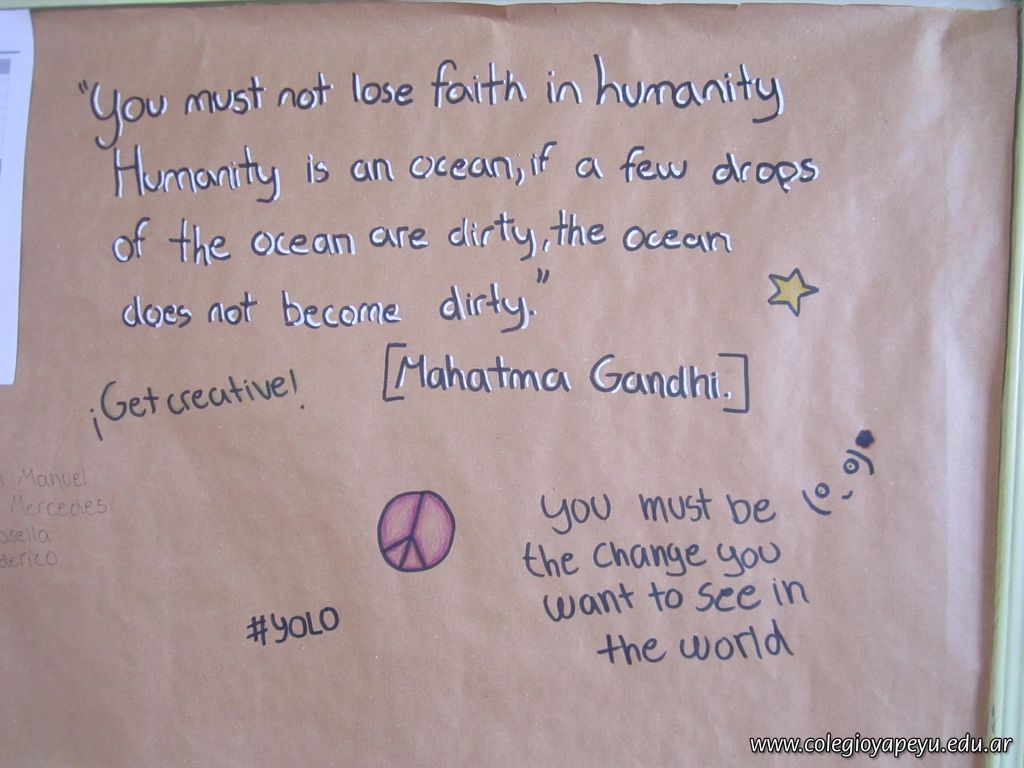 "You must not lose faith in humanity
Humanity is an ocean; if a few drops
of the ocean are dirty, the ocean
does not become dirty."
[Mahatma Gandhi.]
¡Get creative!
Manuel
Mercedes
You must be
the change you
want to see in
the world
#YOLO
www.colegioyapeyu.edu.ar